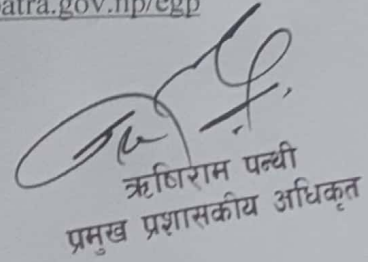 atra.gov.np/egp
ऋषिराम पन्थी
प्रमुख प्रशासकीय अधिकृत